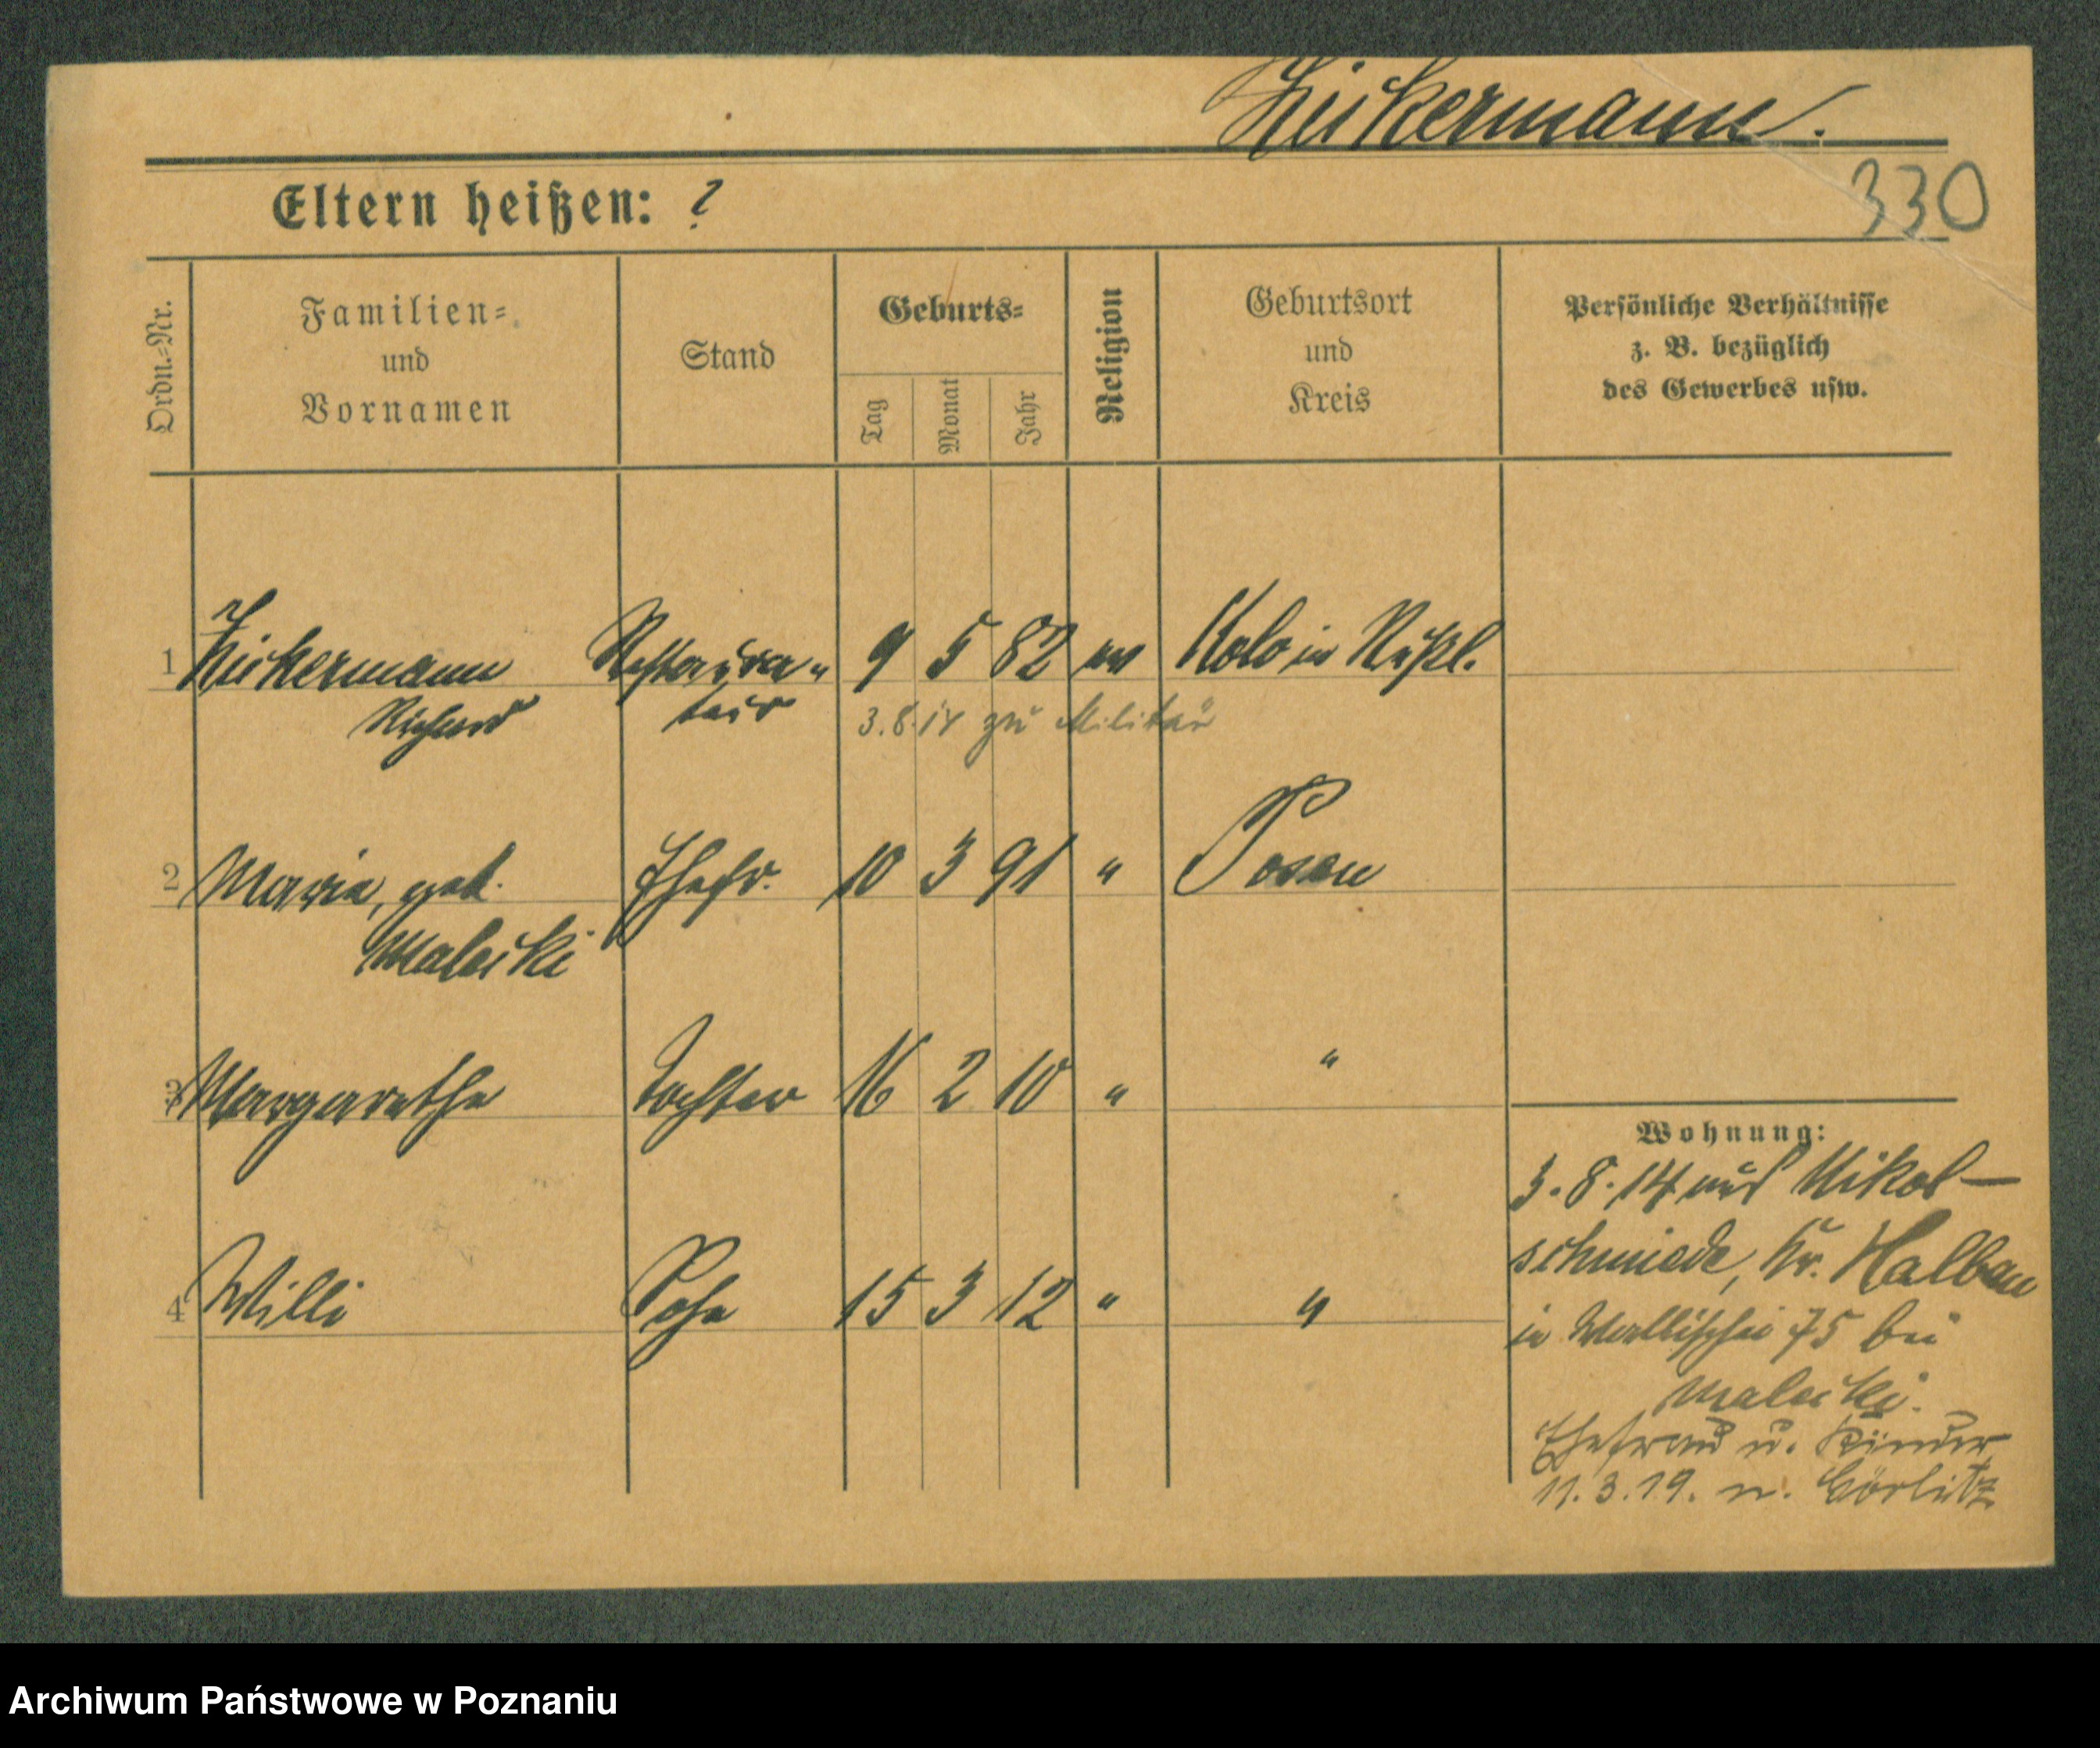 Zückermann.
330
Eltern heißen: ?
Ordn.-Nr.
Familien-
und
Vornamen
Stand
Geburts-
Tag
Monat
Jahr
Religion
Geburtsort
und
Kreis
Persönliche Verhältnisse
z. B. bezüglich
des Gewerbes usw.
1 Zückermann Restaura- 9 5 82 Kolo in Rußl.
Richard teur 3.8.14 zu Militär
2 Maria, geb. Ehefr. 10 3 91 " Posen
Malecki
3 Margarethe Tochter 16 2 10 " "
4 Willi Sohn 15 3 12 " "
Wohnung:
3.8.14 Nikol-
schmiede, Kr. Halbau
in Wallischei 75 bei
Malecki.
Ehefrau u. Kinder
11.3.19. n. Görlitz
Archiwum Państwowe w Poznaniu